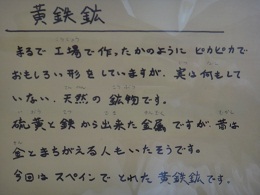 黄鉄鉱
まるで工場で作ったかのようにピカピカで
おもしろい形をしていますが、実は何もして
いない、天然の鉱物です。
硫黄と鉄から出来た金属ですが昔は
金とまちがえる人もいたそうです。
今回はスペインでとれた黄鉄鉱です。